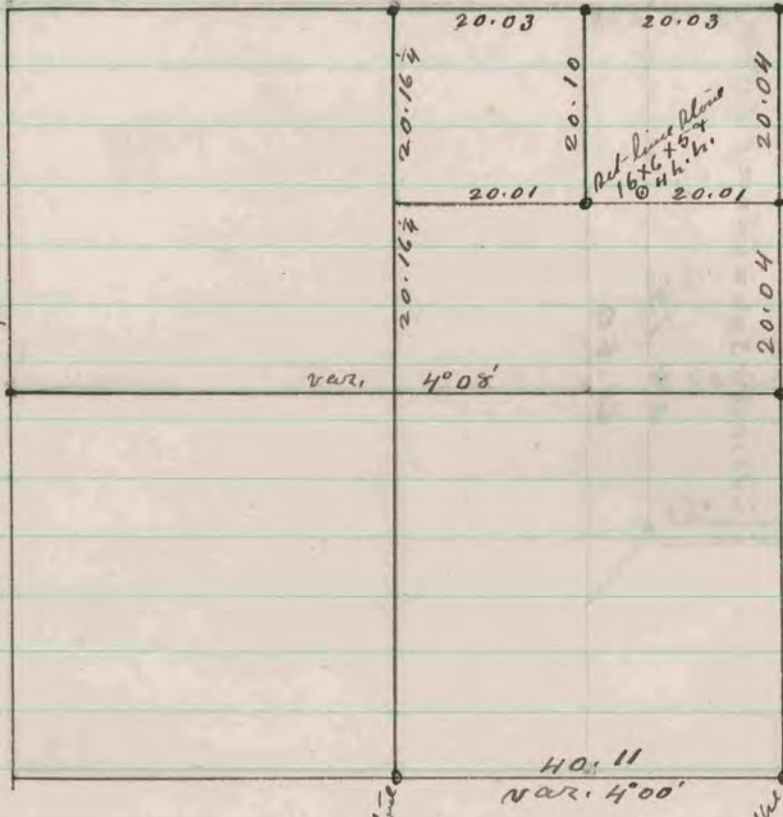 20.03
20.03
20.16¼
20.10
20.04
Set lime stone
16x6x5
20.01
20.01
20.16¼
20.04
var. 4°08'
40.11
var. 4°00'